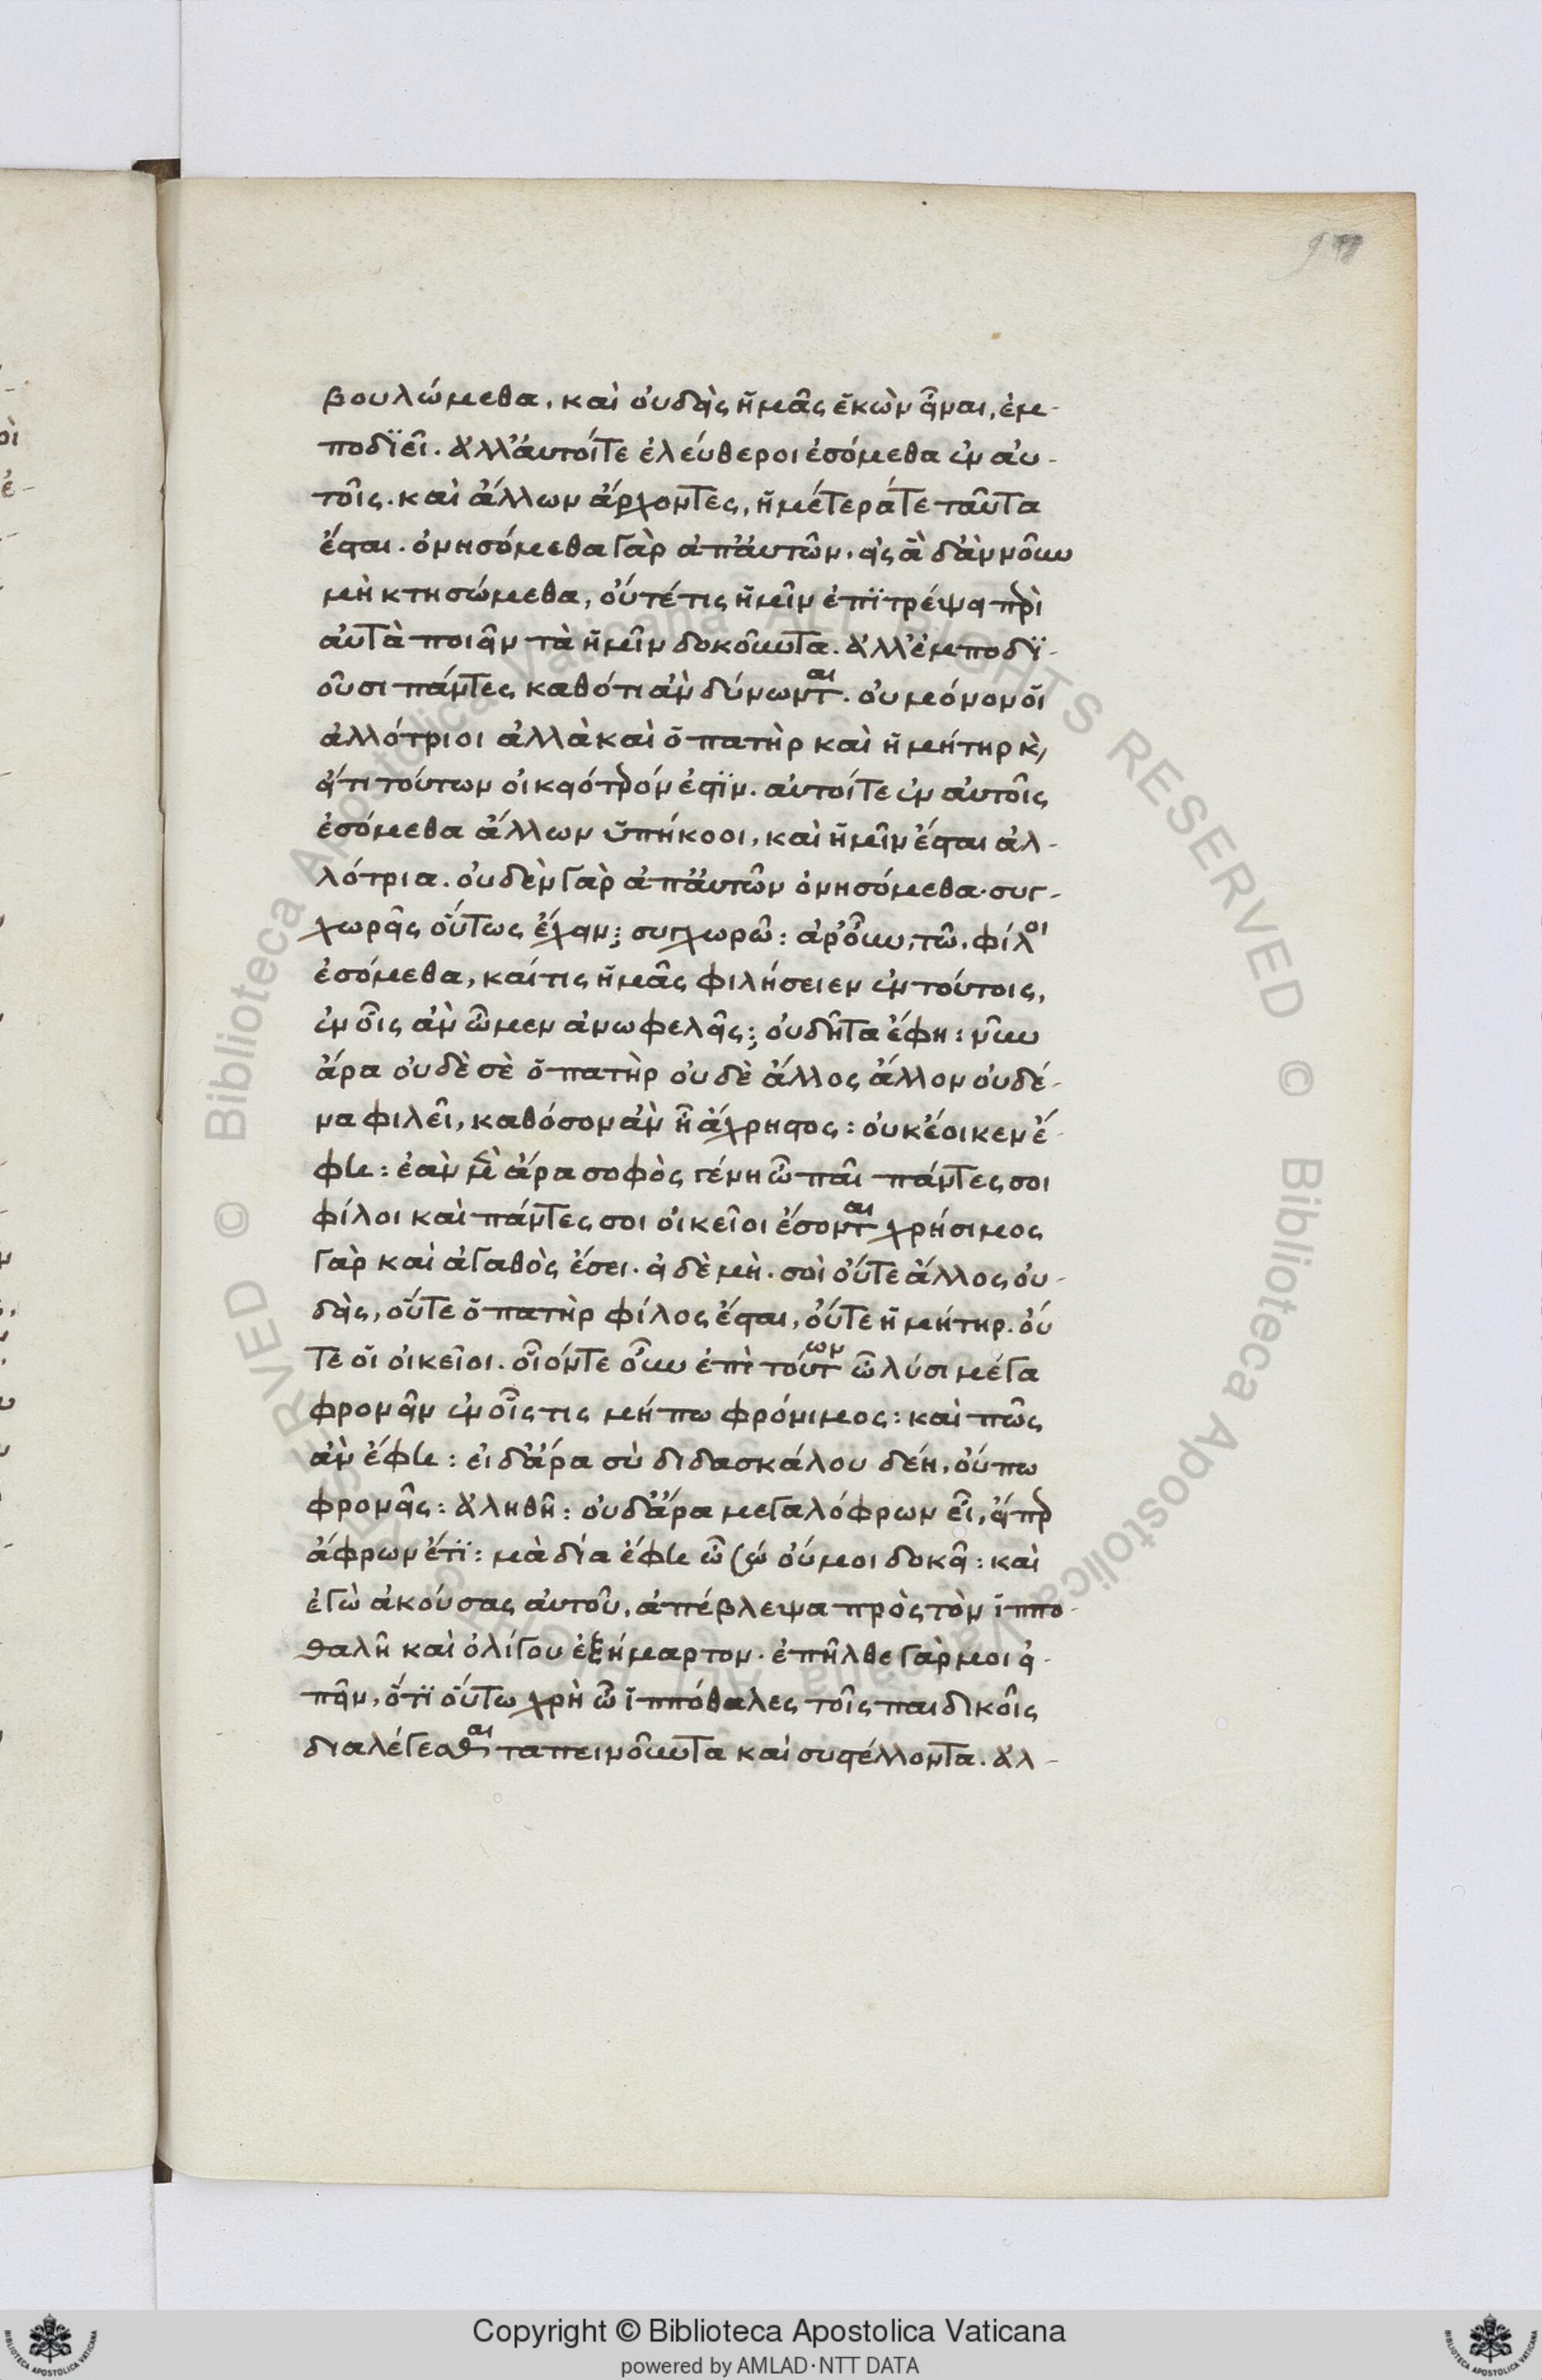 βουλώμεθα, καὶ οὐδεὶς ἡμᾶς ἑκὼν εἶναι, ἐμ-
ποδϊεῖ. ἀλλ' αὐτοί τε ἐλεύθεροι ἐσόμεθα ἐν αὐ-
τοῖς. καὶ ἄλλων ἄρχοντες, ἡμέτερά τε ταῦτα
ἔσται. ὀνησόμεθα γὰρ ἀπ' αὐτῶν. εἰς ἃ δ' ἂν νοῦν
μὴ κτησώμεθα, οὔτέ τις ἡμῖν ἐπϊτρέψει περὶ
αὐτὰ ποιεῖν τὰ ἡμῖν δοκοῦντα. ἀλλ' ἐμποδϊ-
οῦσι πάντες καθότι ἂν δύνωνται. οὐ μόνον οἱ
ἀλλότριοι ἀλλὰ καὶ ὁ πατὴρ καὶ ἡ μήτηρ κὶ,
εἴ τι τούτων οἰκειότερόν ἐστϊν. αὐτοί τε ἐν αὐτοῖς
ἐσόμεθα ἄλλων ὑπήκοοι, καὶ ἡμῖν ἔσται ἀλ-
λότρια. οὐδὲν γὰρ ἀπ' αὐτῶν ὀνησόμεθα. συγ-
χωρεῖς οὕτως ἔχειν; συγχωρῶ: ἆρ' οὖν, τῶ. φίλοι
ἐσόμεθα, καί τις ἡμᾶς φιλήσειεν ἐν τούτοις,
ἐν οἷς ἂν ὦμεν ἀνωφελεῖς; οὐ δῆτα ἔφη: νῦν
ἄρα οὐδὲ σὲ ὁ πατὴρ οὐδὲ ἄλλος ἄλλον οὐδέ-
να φιλεῖ, καθόσον ἂν ἦ ἄχρηστος: οὐκ ἔοικεν ἔ-
φη: ἐὰν μὲν ἄρα σοφὸς γένη ὦ παῖ πάντες σοι
φίλοι καὶ πάντες σοι οἰκεῖοι ἔσονται χρήσιμος
γὰρ καὶ ἀγαθὸς ἔσει. εἰ δὲ μὴ. σοὶ οὔτε ἄλλος οὐ-
δεὶς, οὔτε ὁ πατὴρ φίλος ἔσται, οὔτε ἡ μήτηρ. οὔ
τε οἱ οἰκεῖοι. οἷόν τε οὖν ἐπὶ τούτων ὦ λύσι μέγα
φρονεῖν ἐν οἷς τις μήπω φρόνιμος: καὶ πῶς
ἂν ἔφη: εἰ δ' ἄρα σὺ διδασκάλου δέη, οὔπω
φρονεῖς: ἀληθῆ: οὐδ' ἄρα μεγαλόφρων εἶ, εἴπερ
ἄφρων ἔτϊ: μὰ δία ἔφη ὦ σώ οὔ μοι δοκεῖ: καὶ
ἐγὼ ἀκούσας αὐτοῦ, ἀπέβλεψα πρὸς τὸν ἱππο-
θαλῆ καὶ ὀλίγου ἐξήμαρτον. ἐπῆλθε γὰρ μοι εἰ-
πεῖν, ὅτϊ οὕτω χρὴ ὦ ἱππόθαλες τοῖς παιδικοῖς
διαλέγεσθαι ταπεινοῦντα καὶ συστέλλοντα. ἀλ-
Copyright © Biblioteca Apostolica Vaticana
powered by AMLAD·NTT DATA